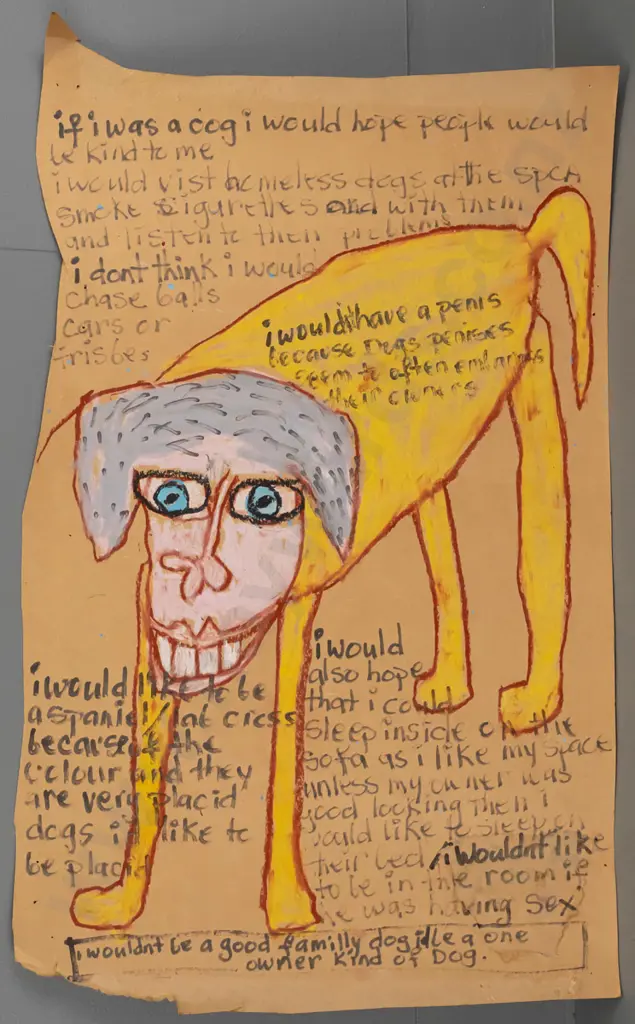 if i was a dog i would hope people would
be kind to me
i would vist homeless dogs at the spca
smoke sigurettes and with them
and listen to their problems
i dont think i would
chase balls
cars or
frisbes
i wouldnt have a penis
because Dogs penises
seem to often embarrass
their owners
i would like to be
a spaniel/lab cross
because of the
colour and they
are very placid
dogs id like to
be placid
i would
also hope
that i could
sleep inside on the
sofa as i like my space
unless my owner was
good looking then i
would like to sleep on
their bed /i wouldnt like
to be in the room if
he was having sex
i wouldnt be a good familly dog ide a one
owner kind of Dog.